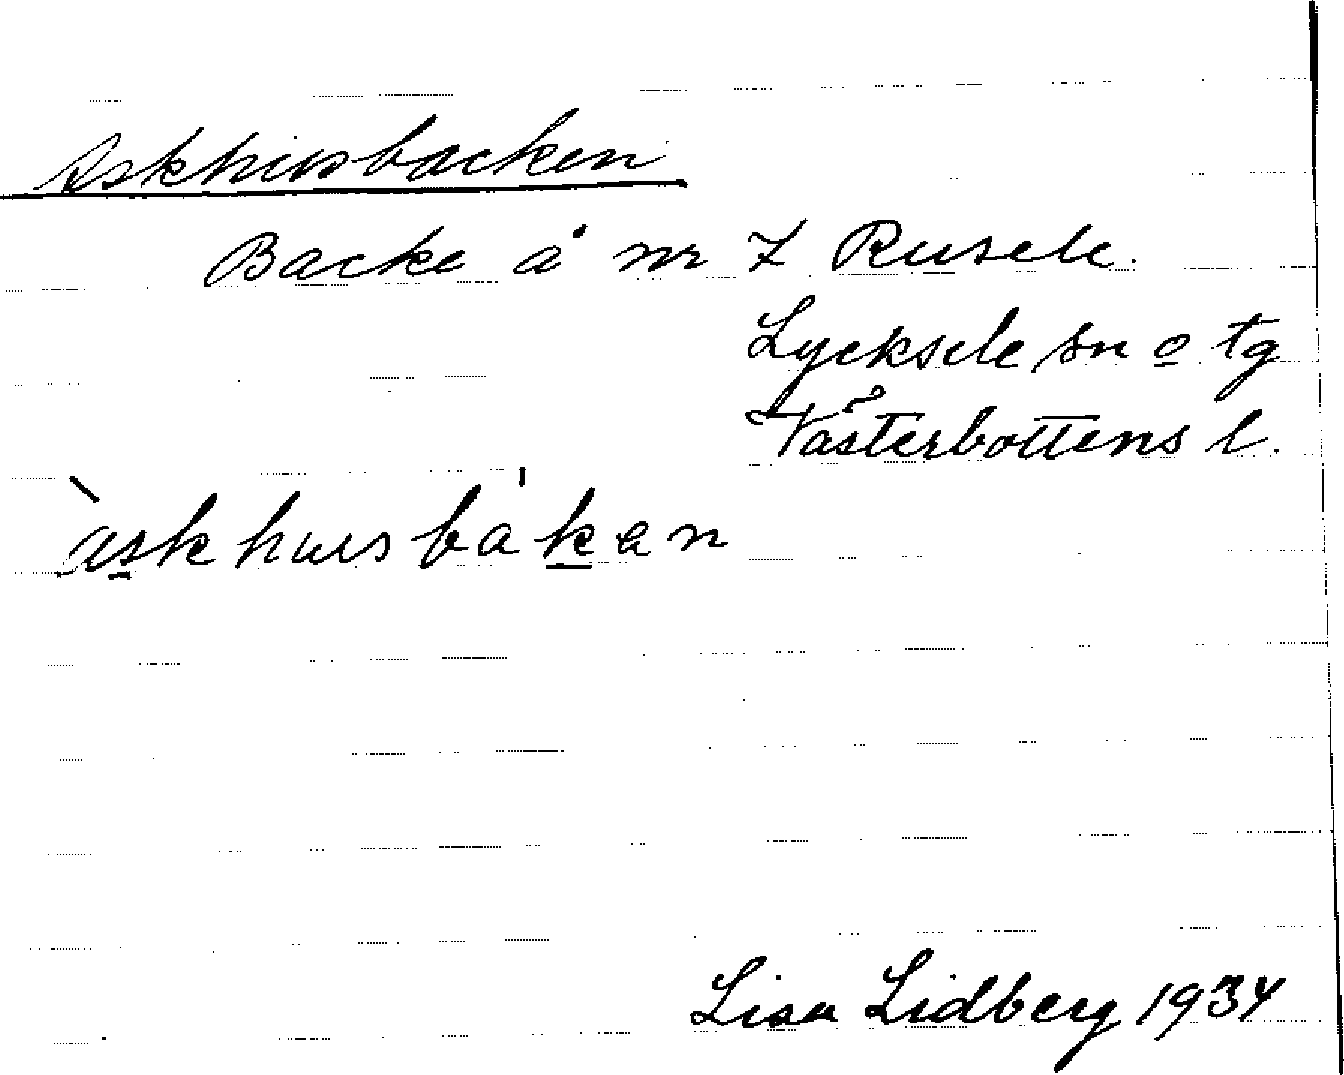 Askhusbacken
Backe å nr 7 Rusele.
Lycksele sn o tg
Västerbottens l.
askhusbakan
Lisa Lidberg 1934